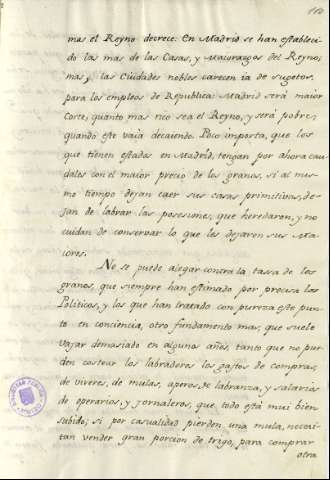 110
mas el Reyno decrece: En Madrid se han estableci
do las mas de las Casas, y Maiorazgos del Reyno,
mas, las Ciudades nobles carecen ia de sugetos,
para los empleos de Republica: Madrid será maior
Corte, quanto mas rico sea el Reyno, y será pobre,
quando este vaia decaiendo. Poco importa, que los
que tienen estados en Madrid, tengan por ahora cau
dales con el maior precio de los granos, si al mes-
mo tiempo dejan caer sus casas primitivas, de-
jan de labrar las posesiones, que heredaron, y no
cuidan de conservar lo que les dejaron sus Ma
iores.
No se puede alegar contra la tassa de los
granos, que siempre han estimado por precisa los
Politicos, y los que han tratado con pureza este pun
to en conciencia, otro fundamento mas, que suele
vajar demasiado en algunos años, tanto que no pue
den costear los labradores los gastos de compras,
de viveres, de mulas, aperos, de labranza, y salarios
de operarios, y jornaleros, que todo está mui bien
subido; si por casualidad pierden una mula, necesi
tan vender gran porcion de trigo, para comprar
otra